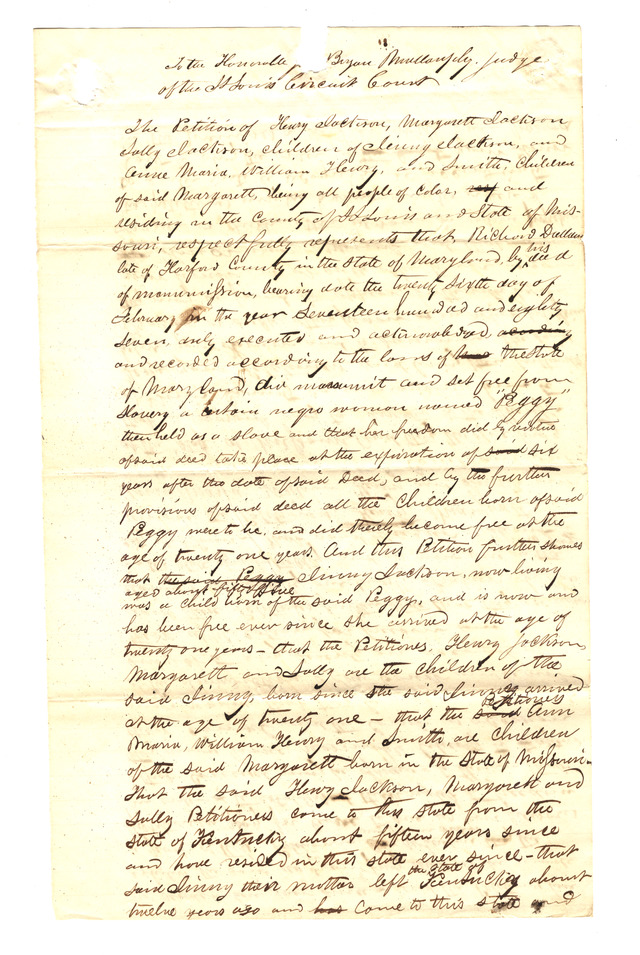 To the Honorable Bryan Mullanphy. Judge
of the St Louis Circuit Court
The Petition of Henry Jackson, Margarett Jackson
Sally Jackson, Children of Jinny Jackson, and
Anne Maria, William Henry, and Smith, Children
of said Margarett, being all people of color, and
residing in the County of St Louis and State of Mis-
souri, respectfully represents that, Richard
late of Harford County in the State of Maryland, by his deed
of manumission, bearing date the twenty sixth day of
February in the year Seventeen hundred and eighty
seven, duly executed and acknowledged, according
and recorded according to the laws of the State
of Maryland, did manumit and set free from
Slavery a certain negro woman named "Peggy"
then held as a slave and that her freedom did by virtue
of said deed take place at the expiration of said six
years after the date of said Deed, and by the further
provisions of said deed all the Children born of said
Peggy were to be, and did thereby become free at the
age of twenty one years. And this Petition further shewes
that the said Peggy Jinny Jackson, now living
aged about fifty five
was a child born of the said Peggy, and is now and
has been free ever since she arrived at the age of
twenty one years – that the Petitiones, Henry Jackson,
Margarett and Sally are the children of the
said Jinny, born since she said Jinny arrived
at the age of twenty one – that the said Petitiones Ann
Maria, William Henry and Smith, are Children
of the said Margarett born in the State of Missouri –
That the said Henry Jackson, Margarett and
Sally Petitioness come to this state from the
State of Kentucky about fifteen years since
and have resided in this state ever since – that
said Jinny their mother left the State of Kentucky about
twelve years ago and has come to this state and